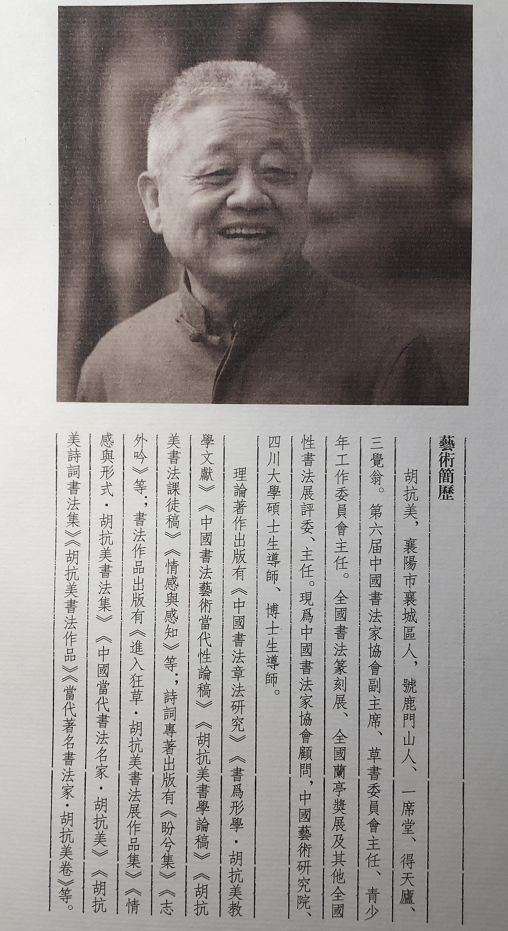 藝術簡歷
胡抗美，襄陽市襄城區人，號鹿門山人、一席堂、得天廬、
三覺翁。第六届中國書法家協會副主席、草書委員會主任、青少
年工作委員會主任。全國書法篆刻展、全國蘭亭獎展及其他全國
性書法展評委、主任。現爲中國書法家協會顧問，中國藝術研究院、
四川大學碩士生導師、博士生導師。
理論著作出版有《中國書法章法研究》《書爲形學·胡抗美教
學文獻》《中國書法藝術當代性論稿》《胡抗美書學論稿》《胡抗
美書法課徒稿》《情感與感知》等；詩詞專著出版有《盼兮集》《志
外吟》等；書法作品出版有《進入狂草·胡抗美書法展作品集》《情
感與形式·胡抗美書法集》《中國當代書法名家·胡抗美》《胡抗
美詩詞書法集》《胡抗美書法作品》《當代著名書法家·胡抗美卷》等。